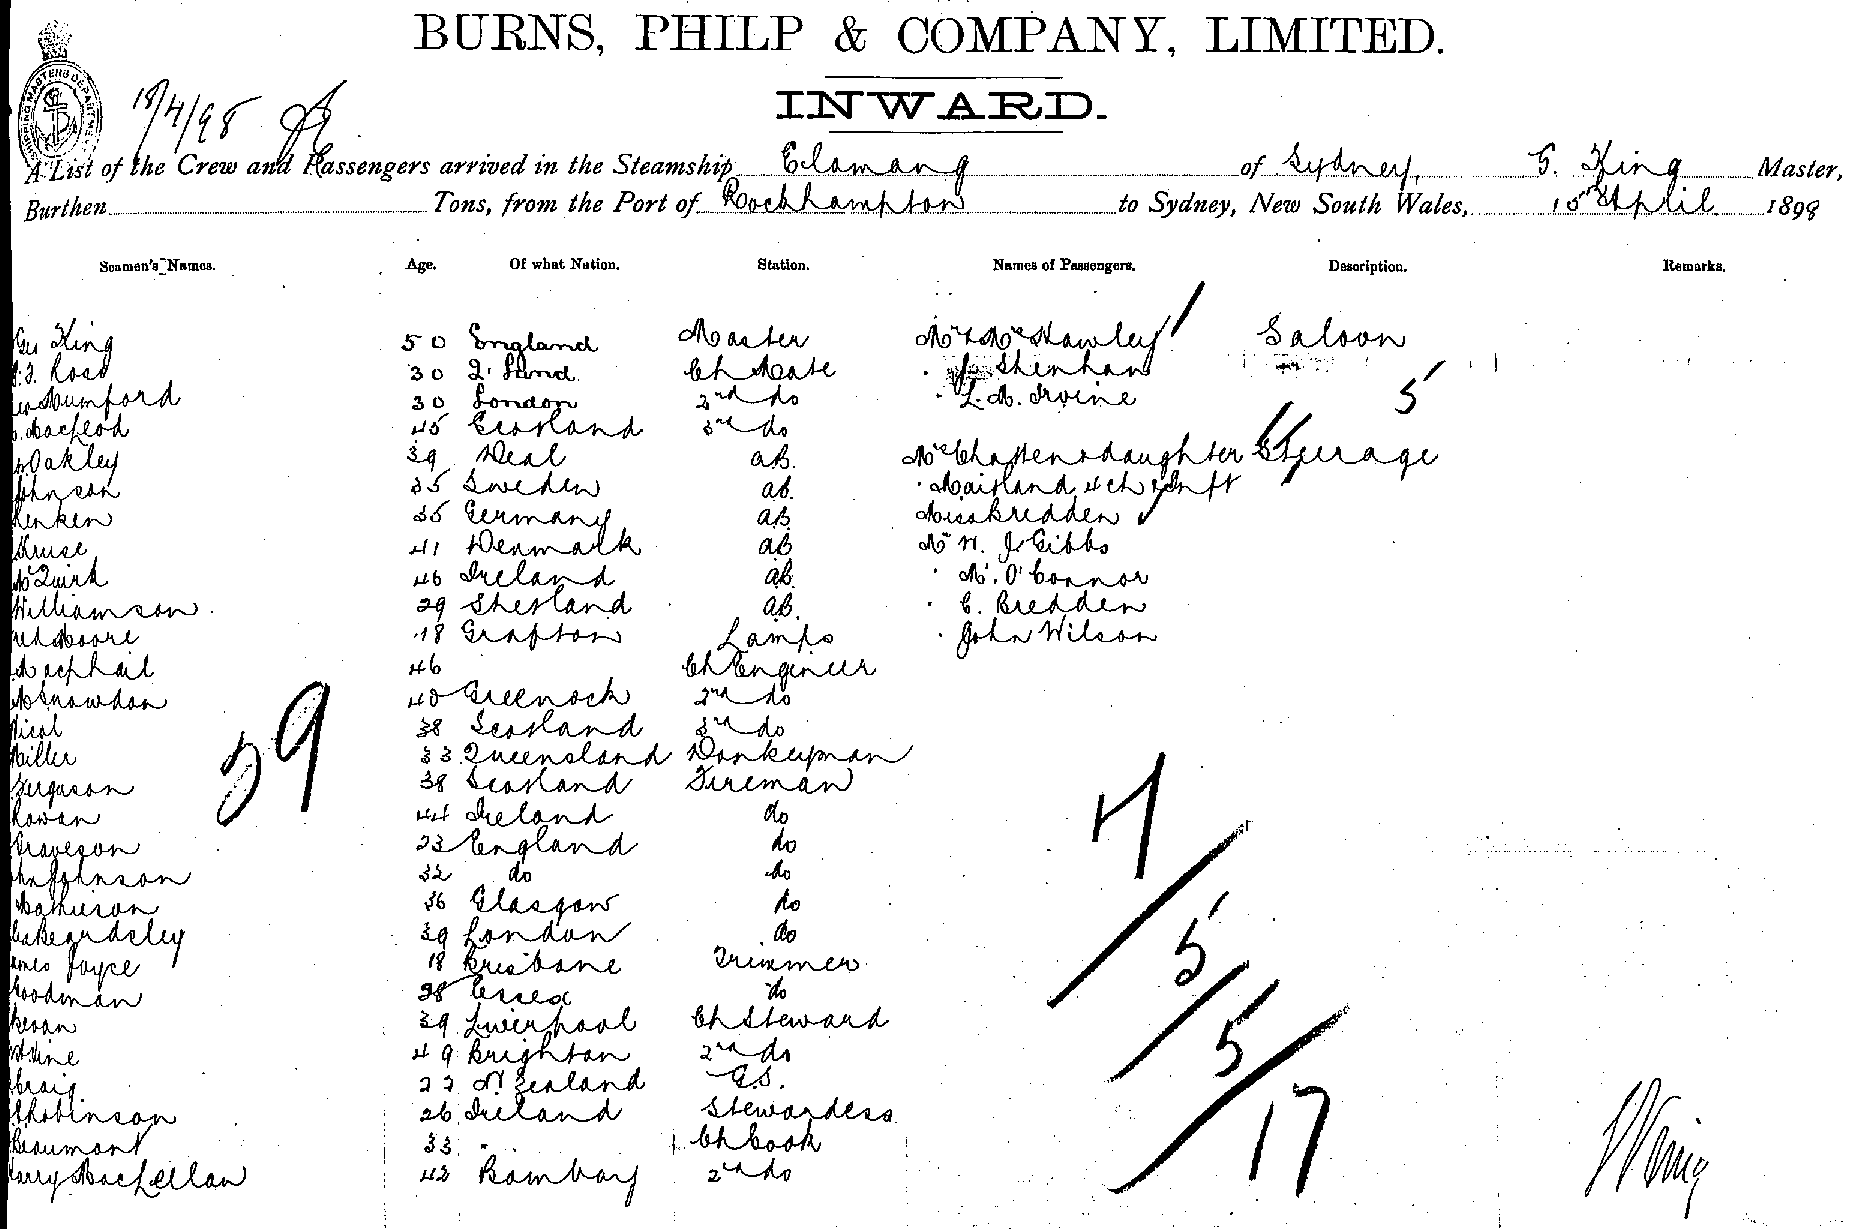 BURNS, PHILP & COMPANY, LIMITED.
INWARD.
18/4/98
A List of the Crew and Passengers arrived in the Steamship Elamang of Sydney, G. King Master,
Burthen Tons, from the Port of Rockhampton to Sydney, New South Wales, 15th April 1898
Seamen's Names. Age. Of what Nation. Station. Names of Passengers. Description. Remarks.
Geo King 50 England Master Mr & Mrs Hawley Saloon
Ross 30 Q'land Ch Mate J. Shenhan
Mumford 30 London 2nd do L. M. Irvine 5
MacLeod 45 Scotland 3rd do
Oakley 39 Deal AB. Mrs Chasten & daughter Steerage
Johnson 35 Sweden AB. " Maitland 4 ch & Inft
Kenken 35 Germany AB Miss Bredden
Kruse 41 Denmark AB Mr H. J. Gibbs
McQuirk 46 Ireland AB. " M. O'Connor
Williamson 29 Shetland AB. " C. Bredden
Moore 18 Grafton Lamps " John Wilson
Macphail 46 Ch Engineer
McSnowdon 40 Greenock 2nd do
Nicol 38 Scotland 3rd do
Miller 33 Queensland Donkeyman
Ferguson 38 Scotland Fireman
39
Rowan 44 Ireland do
Graveson 23 England do
John Johnson 32 do do
Mathieson 36 Glasgow do
Beardsley 39 London do
James Joyce 18 Brisbane Trimmer
Goodman 38 Essex do
39 Liverpool Ch Steward
49 Brighton 2nd do
Craig 22 N Zealand G.S.
Robinson 26 Ireland Stewardess
Beaumont 33 " Ch Cook
Harry MacLellan 42 Bombay 2nd do
7/5/5/17
GKing